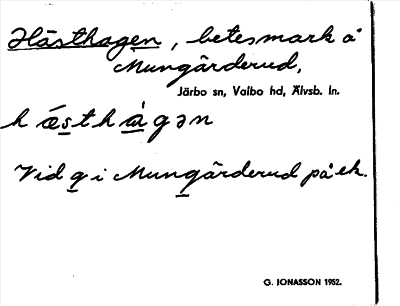 Hästhagen, betesmark å
Mungärderud,
Järbo sn, Valbo hd, Älvsb. ln.
hæsthágən
Vid g i Mungärderud på ek.
G. JONASSON 1952.